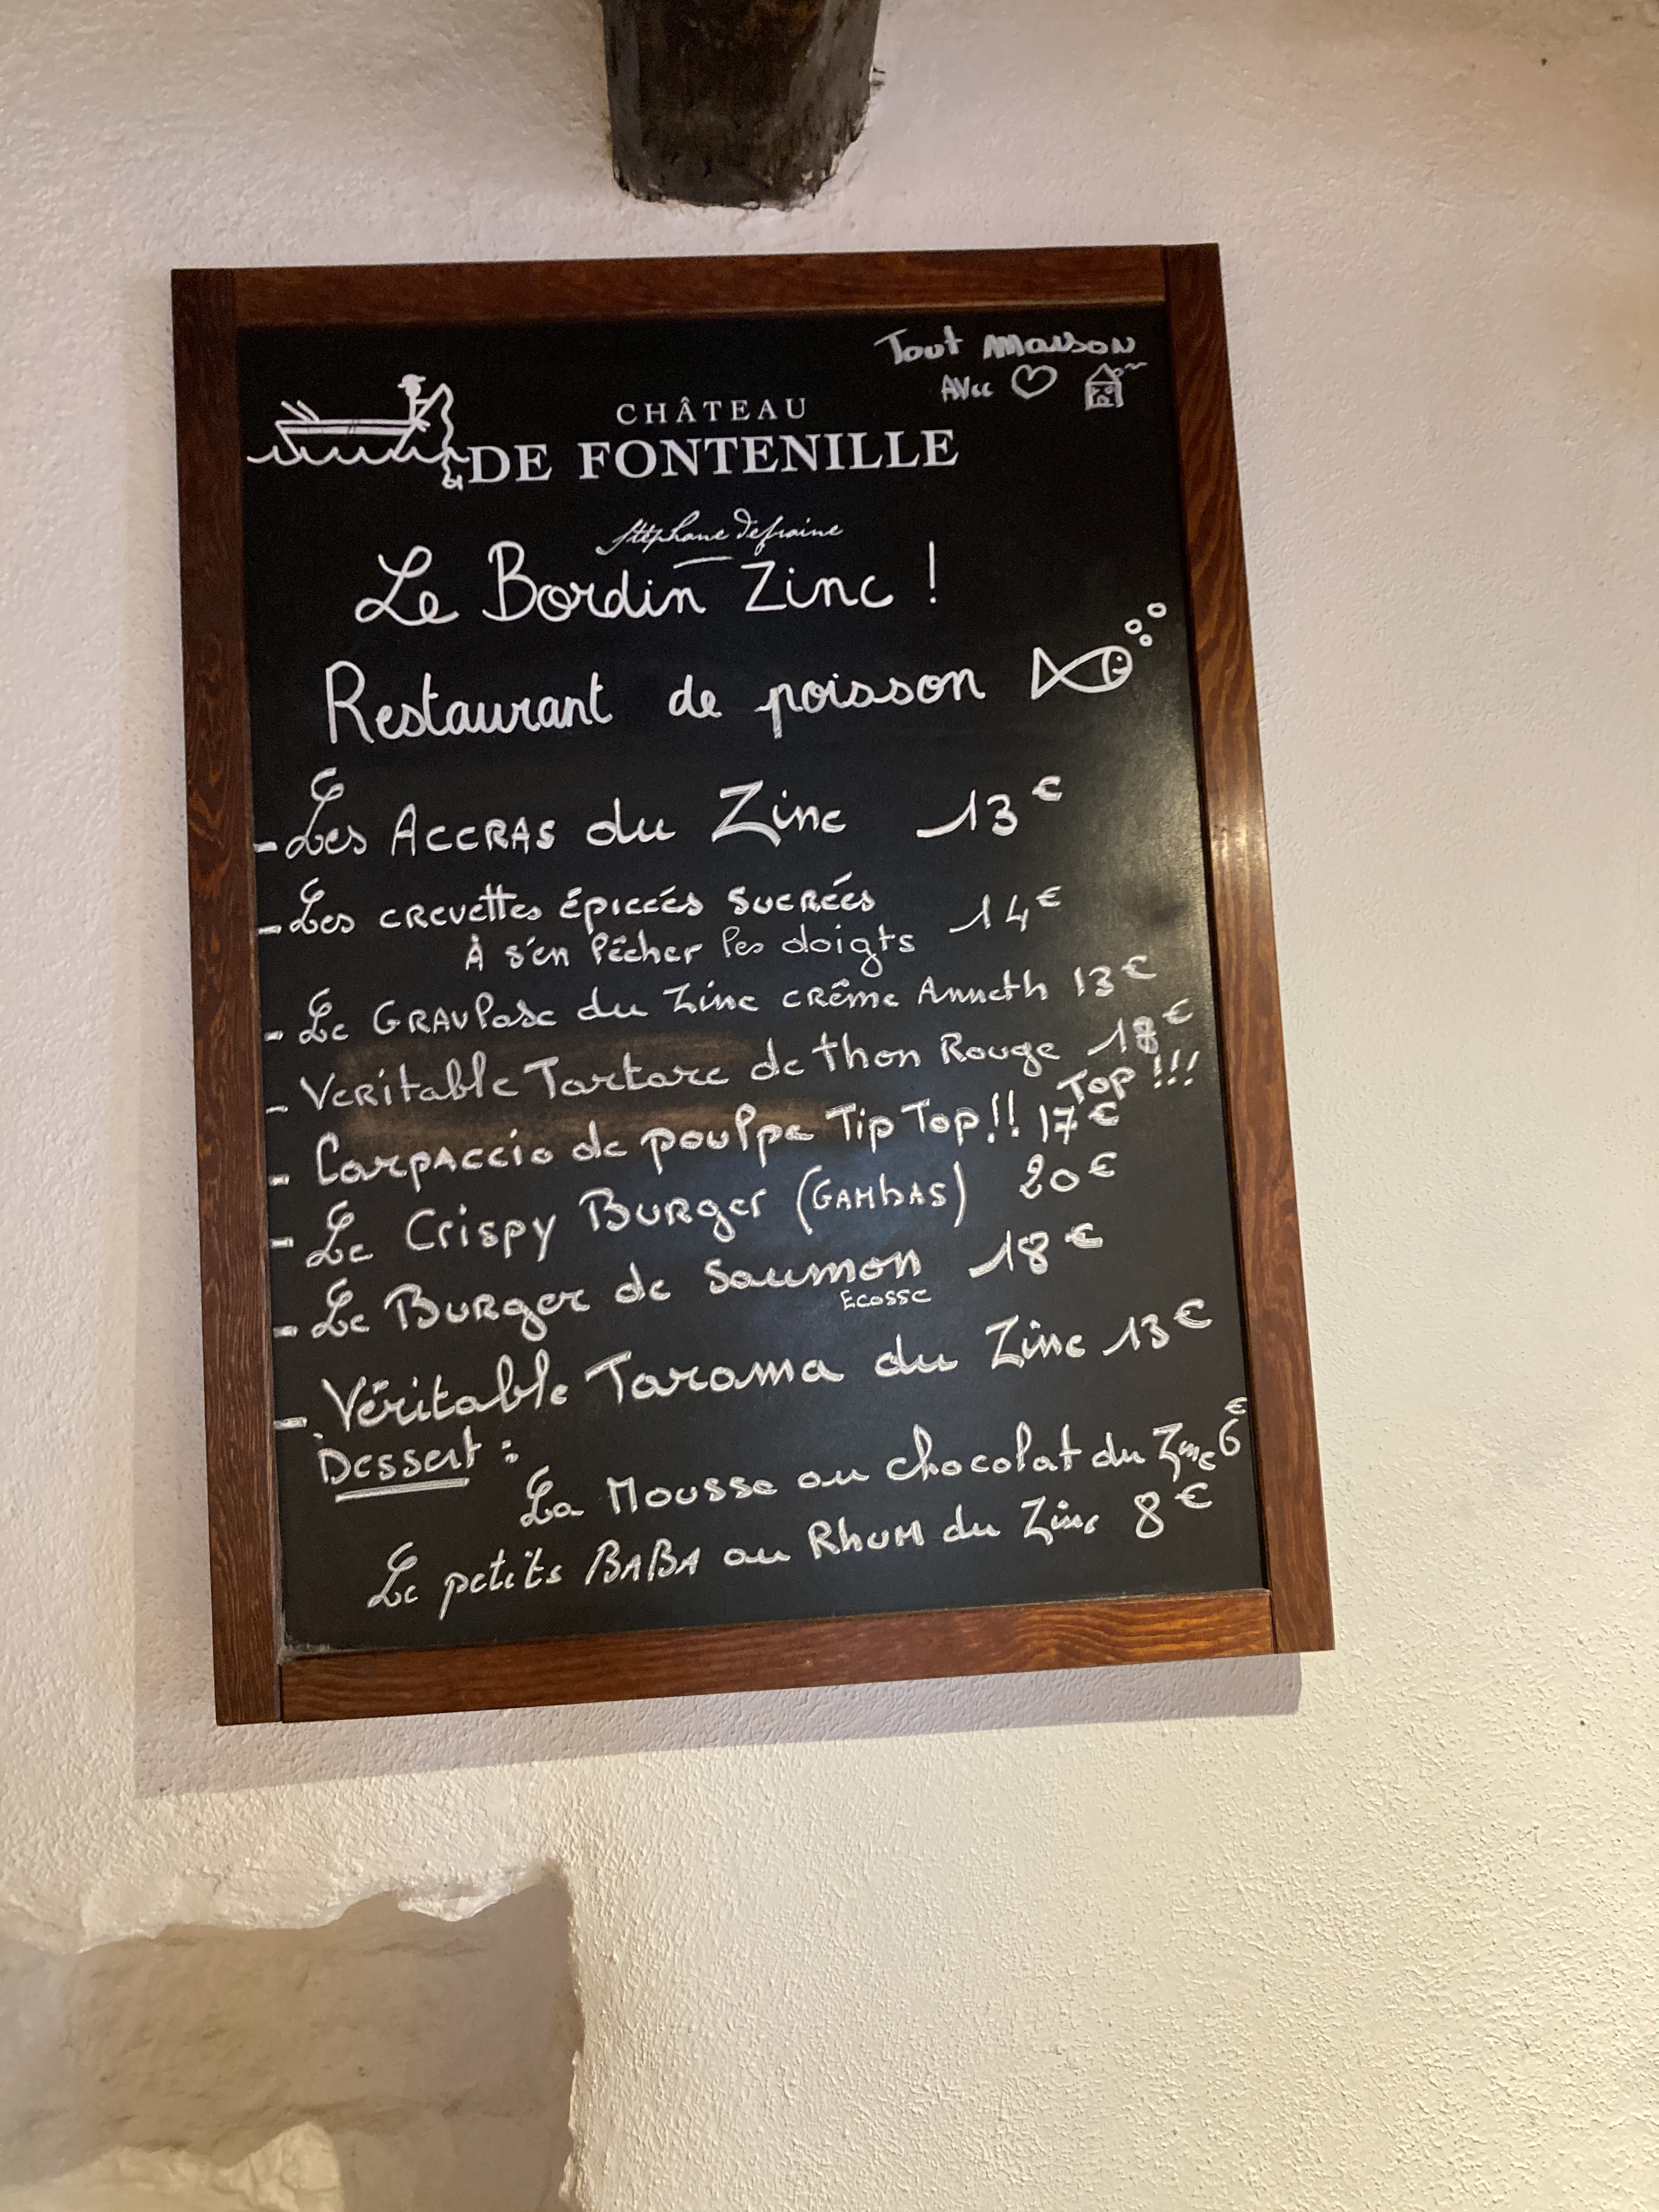 Tout maison
Avec
CHÂTEAU
DE FONTENILLE
Stéphane Defraine
Le Bordin Zinc !
Restaurant de poisson
- Les Accras du Zinc 13€
- Les crevettes épiccés sucréés 14€
À s'en Pêcher les doigts
- Le Gravlasc du Zinc crême Anneth 13€
- Veritable Tartare de thon Rouge 18€
Top !!!
- Carpaccio de poulpe Tip Top!! 17€
- Le Crispy Burger (Gambas) 20€
- Le Burger de Saumon 18€
Ecosse
- Véritable Tarama du Zinc 13€
Dessert :
La Mousse au chocolat du Zinc 6€
Le petits BABA au Rhum du Zinc 8€